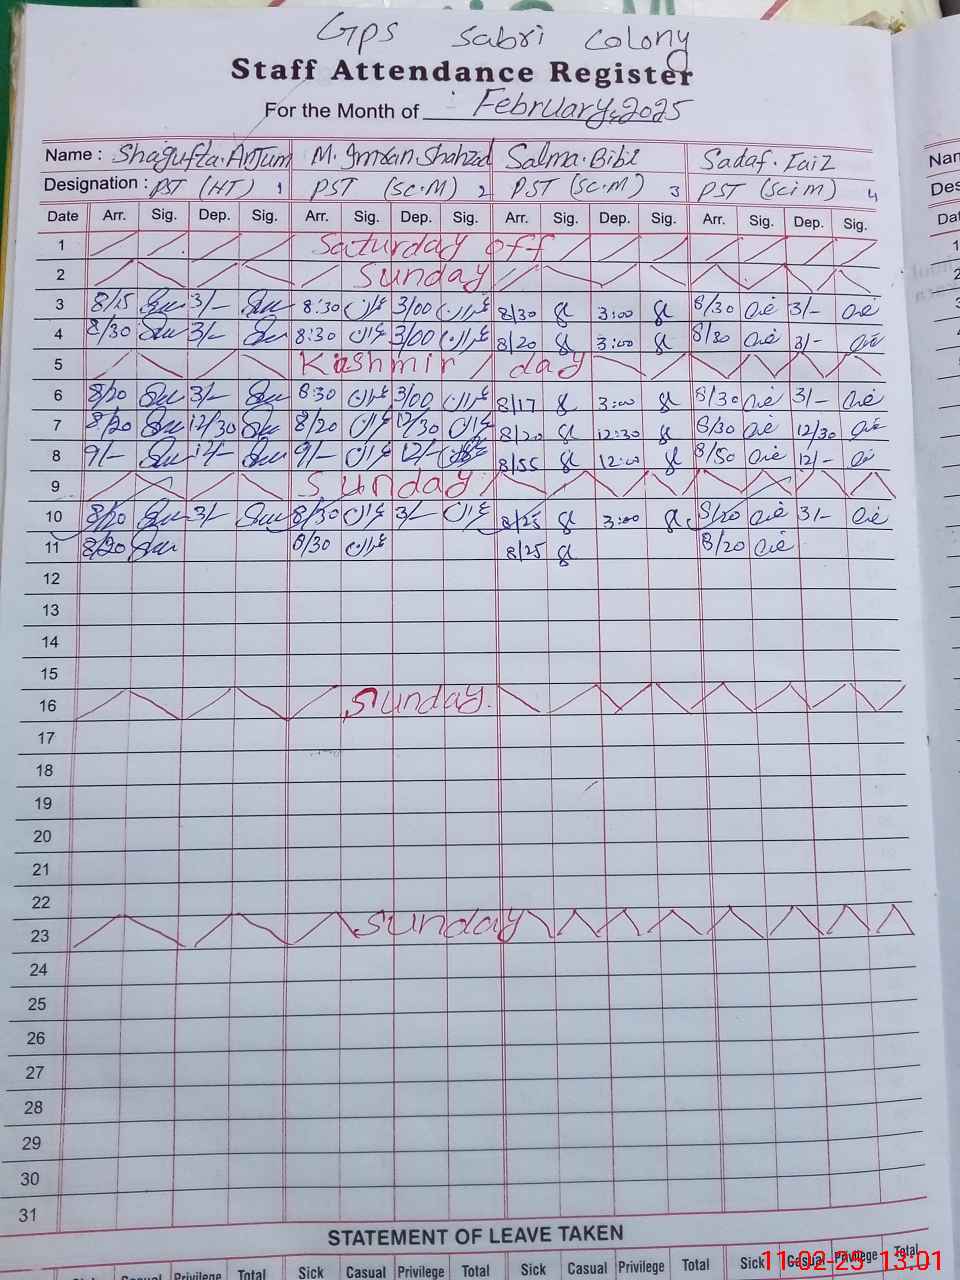 GPS Sabri Colony
Staff Attendance Register
For the Month of February,2025
Name : Shagufta.Anjum M. Imran.Shahzad Salma.Bibi Sadaf.Faiz
Designation : PST (HT) 1 PST (SC.M) 2 PST (SC.M) 3 PST (Sci M) 4
Date Arr. Sig. Dep. Sig. Arr. Sig. Dep. Sig. Arr. Sig. Dep. Sig. Arr. Sig. Dep. Sig.
1 Saturday off
2 Sunday
3 8/15 3/- 8:30 عمران 3/00 عمران 8/30 3:00 8/30 3/-
4 8/30 3/- 8:30 عمران 3/00 عمران 8/20 3:00 8/30 3/-
5 Kashmir day
6 8/20 3/- 8:30 عمران 3/00 عمران 8/17 3:00 8/30 3/-
7 8/20 12/30 8/20 عمران 12/30 عمران 8/20 12:30 8/30 12/30
8 9/- 12/- 9/- عمران 12/- 8/55 12:00 8/50 12/-
9 Sunday
10 8/20 3/- 8/30 عمران 3/- عمران 8/25 3:00 8/20 3/-
11 8/20 8/30 عمران 8/25 8/20
12
13
14
15
16 Sunday
17
18
19
20
21
22
23 Sunday
24
25
26
27
28
29
30
31
STATEMENT OF LEAVE TAKEN
Sick Casual Privilege Total Sick Casual Privilege Total Sick Casual Privilege Total Sick Casual Privilege Total
11-02-25 13:01